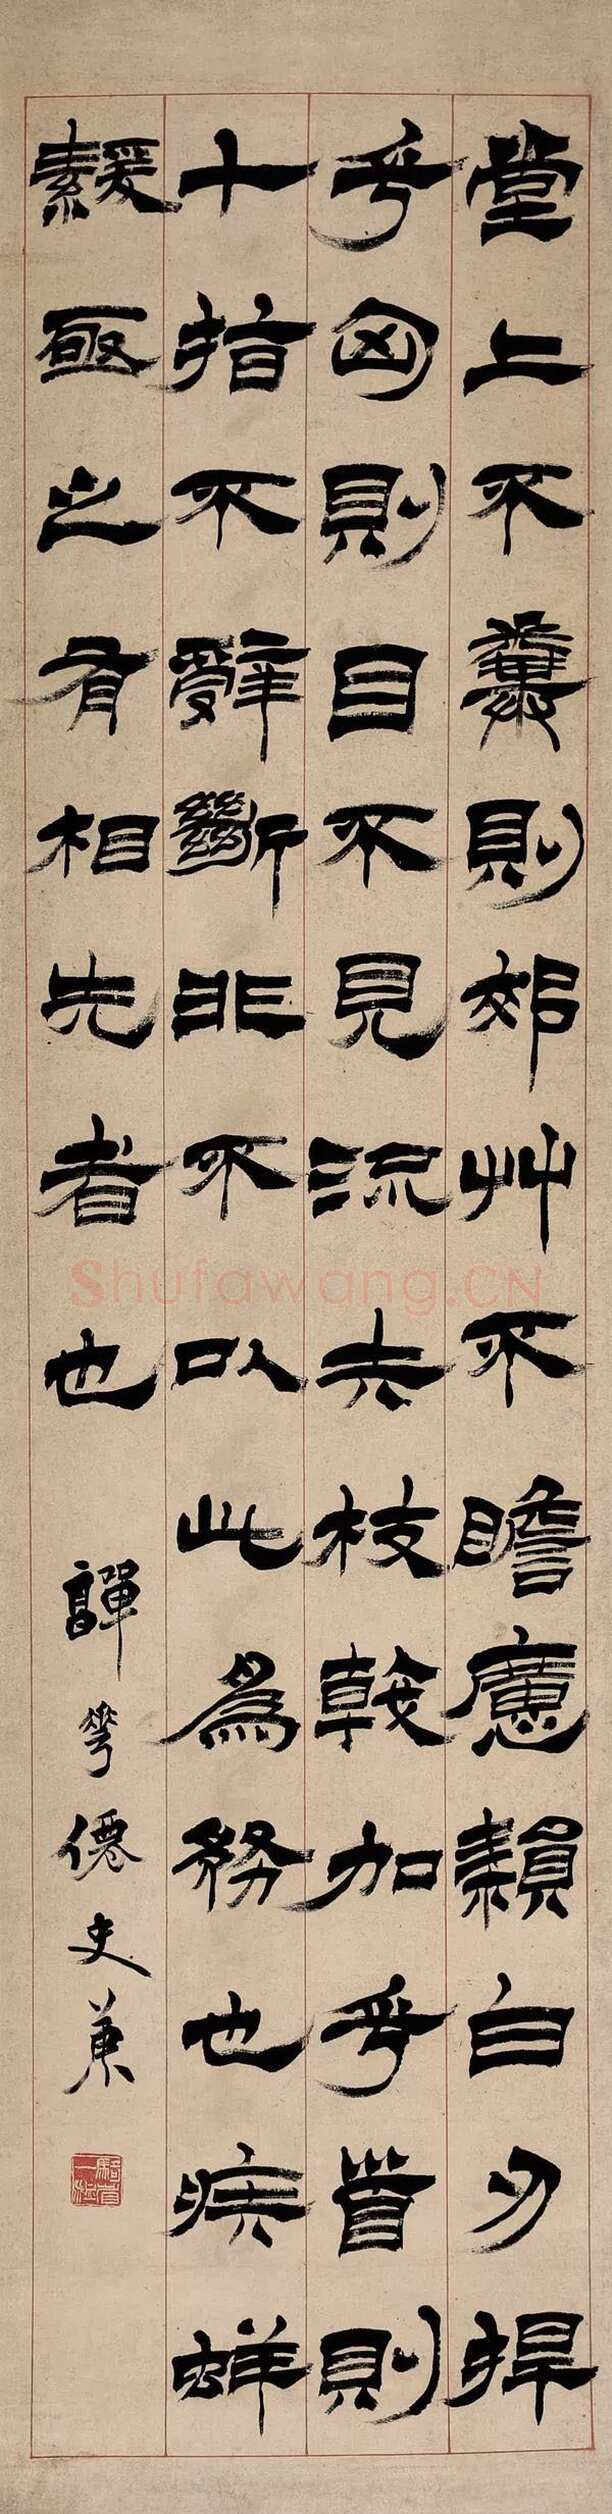 堂上不糞則郊艸不瞻懬白刃捍
乎匈則目不見流矢枝戟加乎首則
十指不辤斷非不以此爲務也疾蛘
緩亟之有相先者也
華僊史
Shufawang.CN